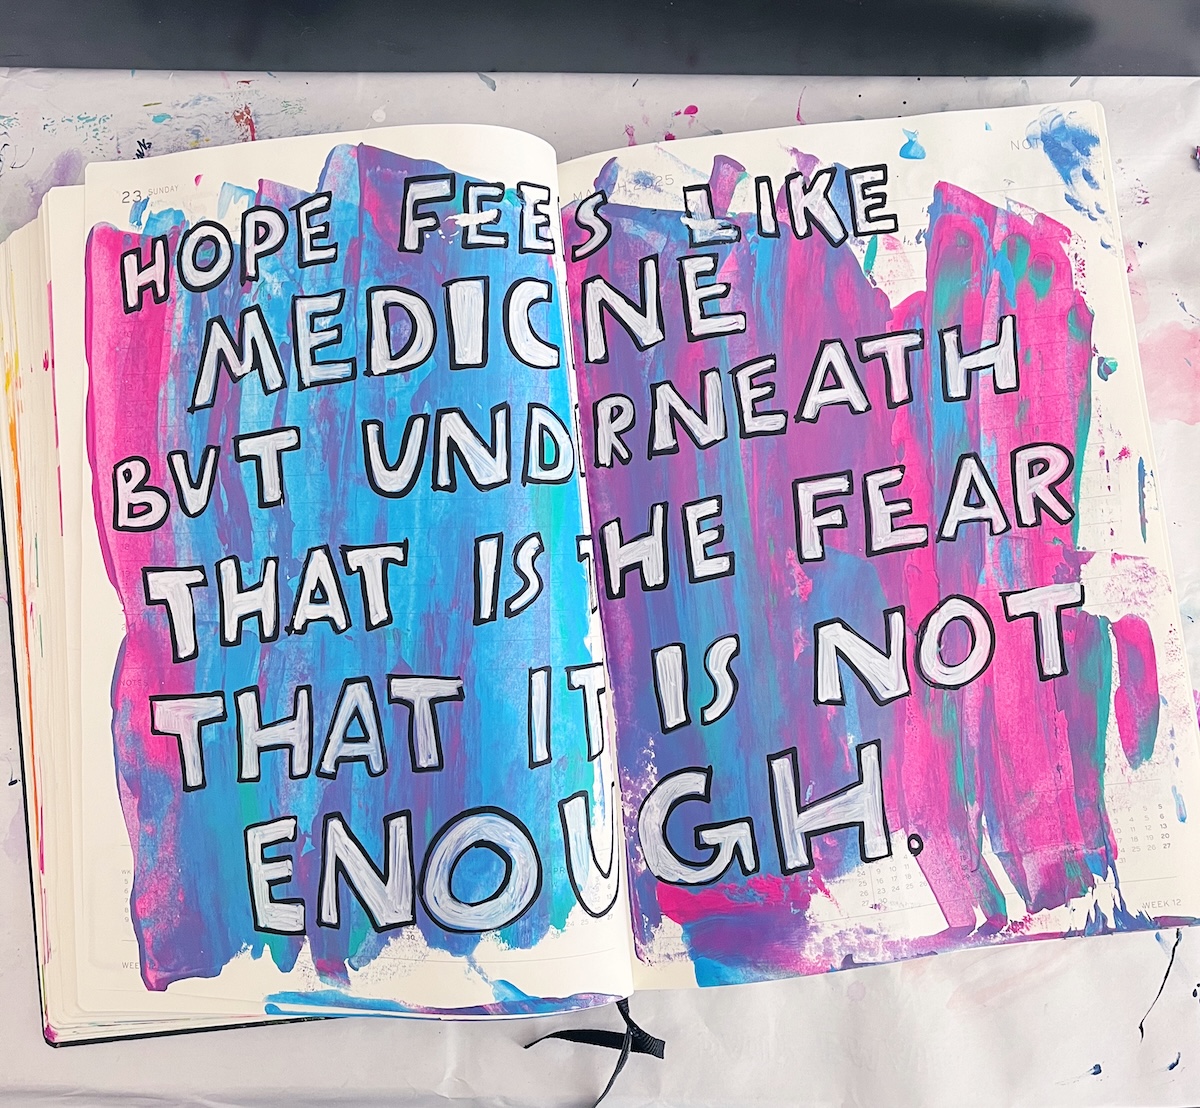 23 SUNDAY
HOPE FEES LIKE
MEDICNE
BUT UNDRNEATH
THAT IS THE FEAR
THAT IT IS NOT
ENOUGH.
WEEK 12